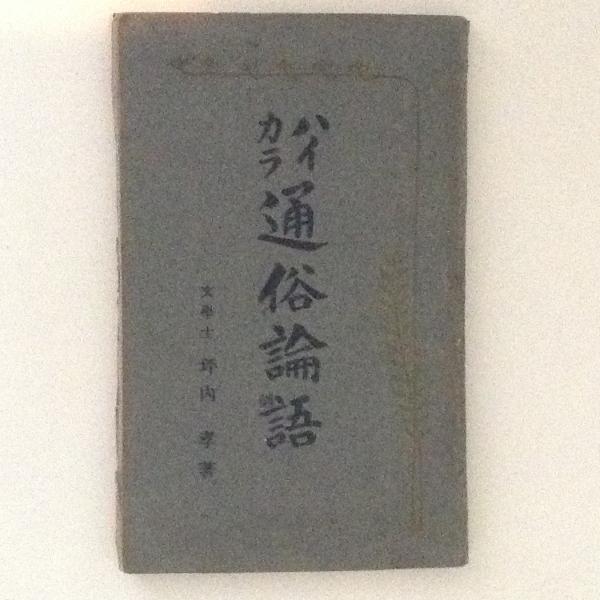 ハイカラ通俗論語
文學士 坪内 孝著